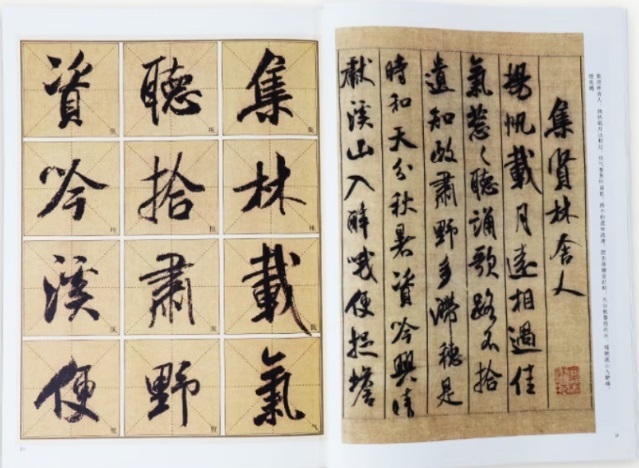 集賢林舍人
揚帆載月遠相過佳
氣蔥々聽誦歌路不拾
遺知政肅野多滯穗是
時和天分秋暑資吟興晴
獻溪山入醉哦便捉蟾
集林載氣
聽拾肅野
資吟溪便